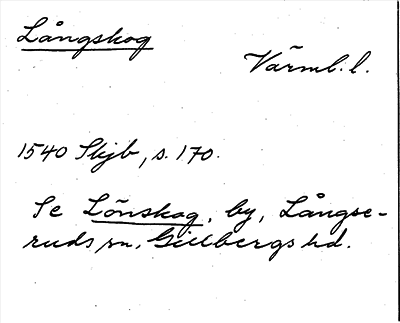 Långskog
Värml. l.
1540 Skjb, s. 170.
Se Lönskog, by, Långse-
ruds sn, Gillbergs hd.